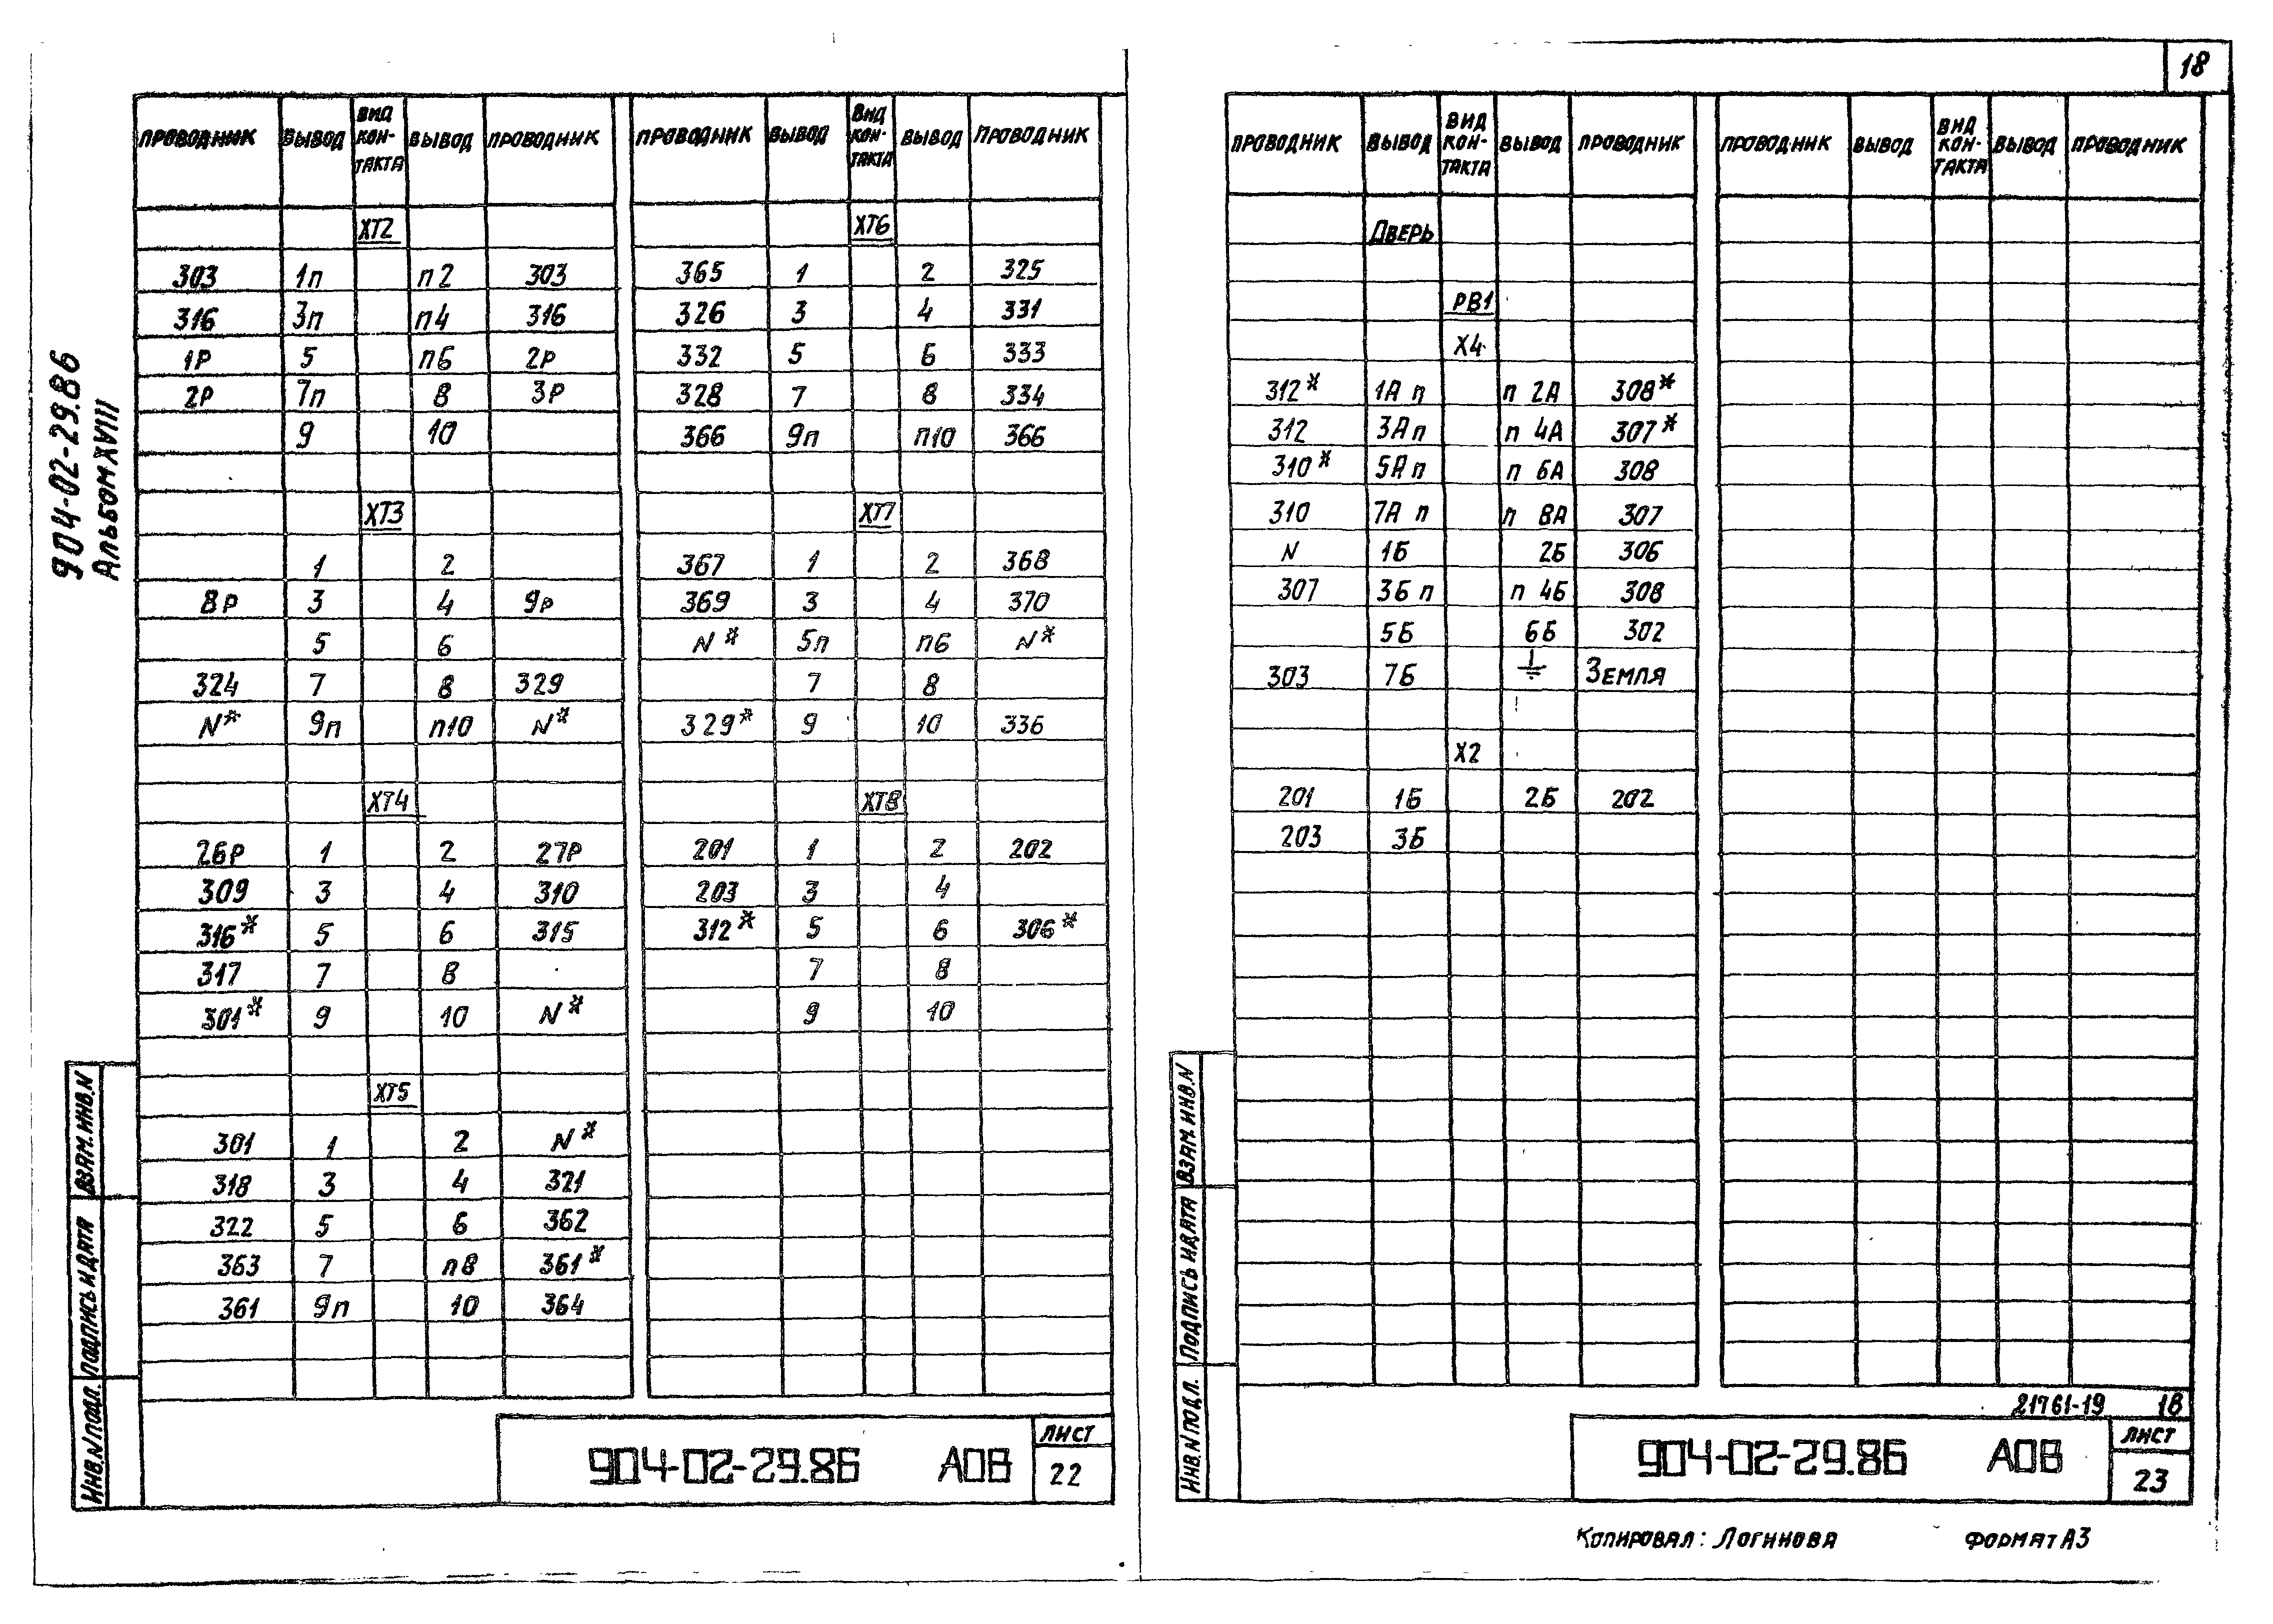 904-02-29.86
Альбом XVIII
Проводник Вывод Вид контакта Вывод Проводник
ХТ2
303 1п п2 303
316 3п п4 316
1Р 5 п6 2Р
2Р 7п 8 3Р
9 10
ХТ3
1 2
8Р 3 4 9Р
5 6
324 7 8 329
N* 9п п10 N*
ХТ4
26Р 1 2 27Р
309 3 4 310
316* 5 6 315
317 7 8
301* 9 10 N*
ХТ5
301 1 2 N*
318 3 4 321
322 5 6 362
363 7 п8 361*
361 9п 10 364
Проводник Вывод Вид контакта Вывод Проводник
ХТ6
365 1 2 325
326 3 4 331
332 5 6 333
328 7 8 334
366 9п п10 366
ХТ7
367 1 2 368
369 3 4 370
N* 5п п6 N*
7 8
329* 9 10 336
ХТ8
201 1 2 202
203 3 4
312* 5 6 306*
7 8
9 10
Взам. инв. N
Подпись и дата
Инв. N подл.
904-02-29.86 АОВ
Лист
22
18
Проводник Вывод Вид контакта Вывод Проводник
Дверь
РВ1
Х4
312* 1А п п 2А 308*
312 3А п п 4А 307*
310* 5А п п 6А 308
310 7А п п 8А 307
N 1Б 2Б 306
307 3Б п п 4Б 308
5Б 6Б 302
303 7Б ⏚ Земля
Х2
201 1Б 2Б 202
203 3Б
Проводник Вывод Вид контакта Вывод Проводник
Взам. инв. N
Подпись и дата
Инв. N подл.
21761-19 18
904-02-29.86 АОВ
Лист
23
Копировал: Логинова Формат А3